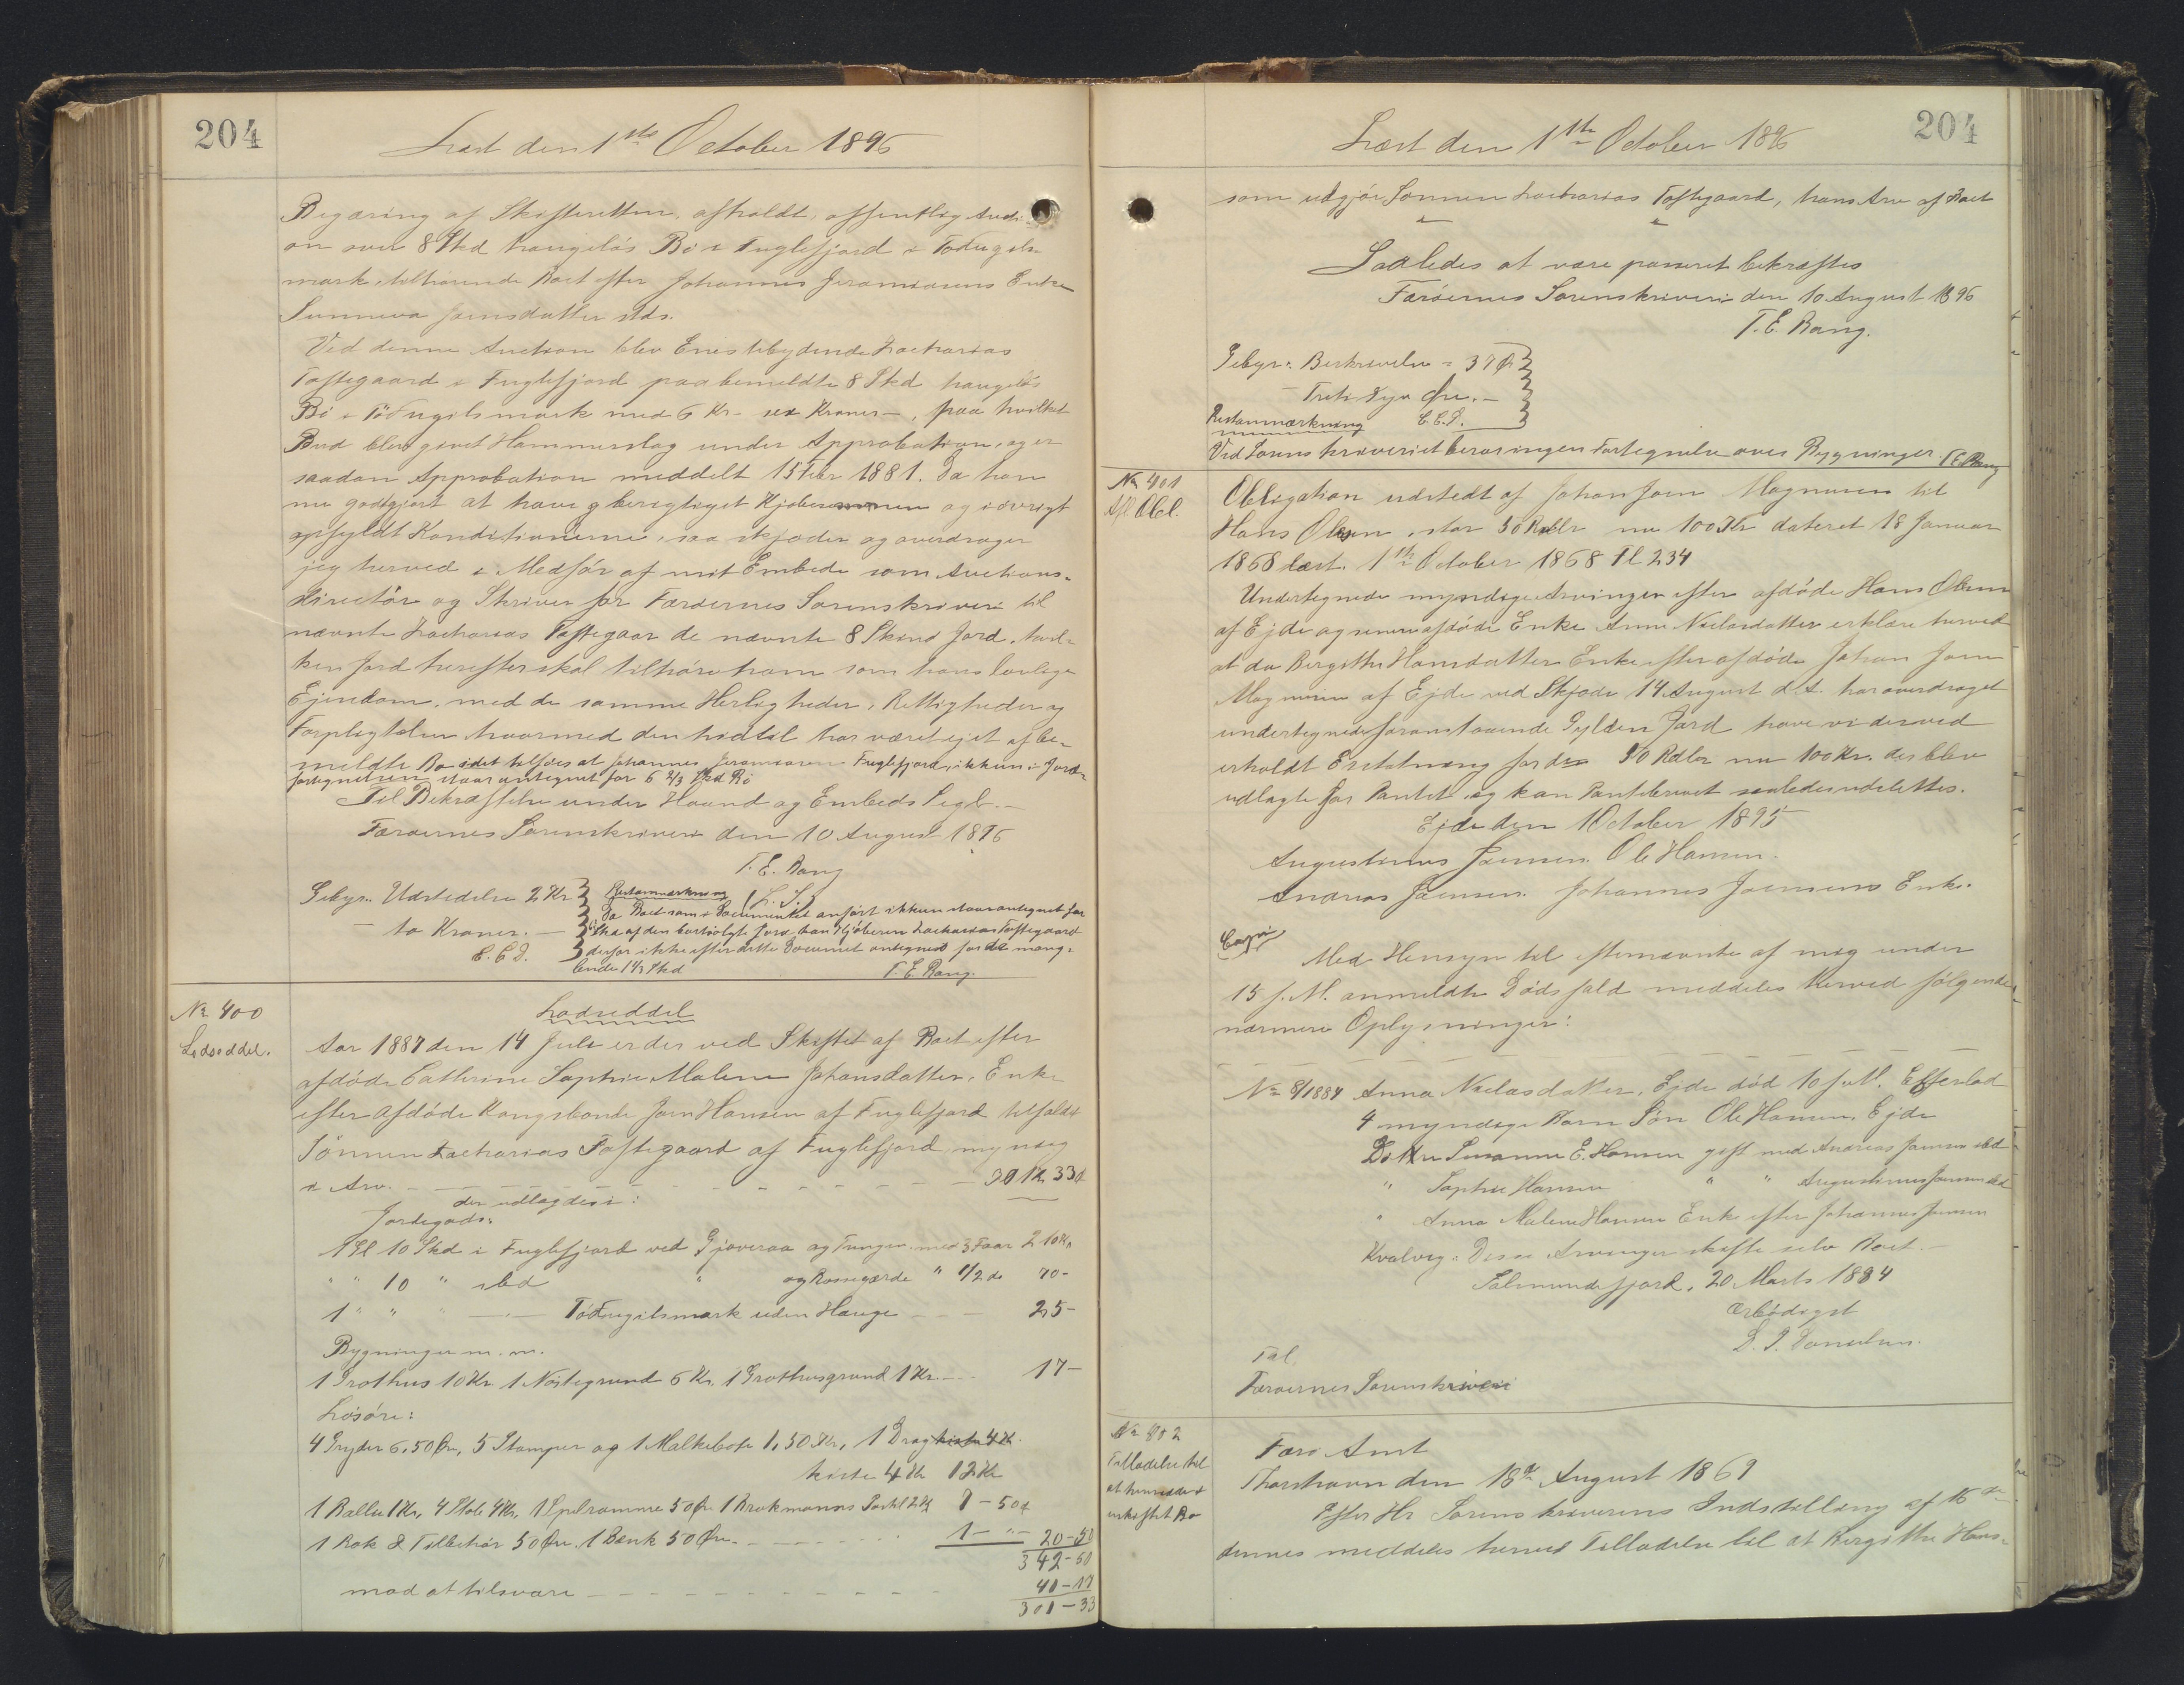 204
Læst den 1ste October 1896
Begæring af Skifteretten, afholdt offentlig Aucti-
on over 8 Skd haugeløs Bø i Fuglefjord i Tofugils-
mark, tilhørende Boet efter Johannes Jeramiasens Enke
Sunneva Joensdatter stds.
Ved denne Auction blev Enestebydende Zacharias
Toftegaard i Fuglefjord paa bemeldte 8 Skd haugeløs
Bø i Tofugilsmark med 6 Kr - sex Kroner -, paa hvilket
Bud blev givet Hammerslag under Approbation, og er
saadan Approbation meddelt 15 Febr 1881. Da han
nu godtgjort at have berigtiget Kjøbesummen og iøvrigt
opfyldt Konditionerne, saa skjøder og overdrager
jeg herved i Medfør af mit Embede som Auctions-
directør og Skriver for Færøernes Sorenskriveri til
nævnte Zacharias Toftegaar de nævnte 8 Skind Jord, hvil-
ken Jord herefter skal tilhøre ham som hans lovlige
Ejendom, med de samme Herligheder, Rettigheder og
Forpligtelser hvormed den hidtil har været ejet af be-
meldte Bo idet tilføies at Johannes Jeramiasen Fuglefjord, ikkun i Jorde-
fortegnelsen staar antegnet for 6 2/3 Skd Bø
Til Bekræftelse under Haand og Embeds Segl. -
Færøernes Sorenskriveri den 10 August 1896
T. E. Bang
(L. S.)
Gebyr. Udstedelse 2 Kr
- to Kroner. -
E. E. D.
Restanmærkning
Da Boet som i Documentet anført ikkun staar antegnet for
Skd af den bortsolgte Jord kan Kjøberen Zacharias Toftegaard
derfor ikke efter dette Document antegnes for de mang-
lende 1 1/3 Skd
T. E. Bang.
No 400
Lodseddel.
Lodseddel
Aar 1887 den 14 Juli er der ved Skiftet af Boet efter
afdøde Cathrine Sophie Malene Johansdatter, Enke
efter afdøde Kongsbonde Joen Hansen af Fuglefjord tilfaldt
Sønnen Zacharias Toftegaard af Fuglefjord, myndig
i Arv. - - - 301 Kr. 33 Ø
der udlagdes i:
Jordegods:
1 Gl 10 Skd i Fuglefjord ved Gjoveraa og Tungen med 3 Faar 210 Kr
" " 10 " stsd " og Rossegærde " 1/2 do 90 -
1 " " " - " - Tofugilsmark uden Hauge - - 25 -
Bygninger m. m.
1 Grothus 10 Kr. 1 Nøstegrund 6 Kr. 1 Grothusgrund 1 Kr. - 17 -
Løsøre:
4 Gryder 6,50 Øre, 5 Stamper og 1 Malkebøtte 1,50 Kr, 1 Dragkiste 4 Kr.
kiste 4 Kr 12 Kr
1 Ballie 1 Kr, 4 Stole 4 Kr, 1 Spelramme 50 Øre 1 Brokmanns Postil 2 Kr 7 - 50 Ø
1 Rok & Tilbehør 50 Øre. 1 Bænk 50 Øre. - - - 1 - " - 20 - 50
342 - 50
mod at tilsvare - - - 41 - 17
301 - 33
204
Læst den 1ste October 1896
som udgjør Sønnen Zacharias Toftegaard, hans Arv af Boet
Saaledes at være passeret bekræftes
Færøernes Sorenskriveri den 10 August 1896
T. E. Bang.
Gebyr: Beskrivelse = 37 Øre
- Treti Syv Øre. -
E. E. D.
Restanmærkning
Ved Sorenskriveriet beror ingen Fortegnelse over Bygninger. T E Bang
No 401
Afl. Obl.
Obligation udstedt af Johan Joen Magnusen til
Hans Olesen, stor 50 Rdlr nu 100 Kr dateret 18 Januar
1868 læst. 1ste October 1868 Fl 234
Undertegnede myndige Arvinger efter afdøde Hans Olesen
af Ejde og senere afdøde Enke Anne Nielasdatter erklære herved
at da Bergithe Hansdatter Enke efter afdøde Johan Joen
Magnusen af Ejde ved Skjøde 14 August d. A. har overdraget
undertegnede foranstaaende Gylden Jord have vi derved
erholdt Erstatning for de 50 Rdlr nu 100 Kr. der blev
udlagte for Pantet, og kan Pantebrevet saaledes udslettes.
Ejde den 1 October 1895
Augustinus Joensen. Ole Hansen.
Andreas Joensen. Johannes Joensens Enke.
Copi
Med Hensyn til efternævnte af mig under
15 f. M. anmeldte Dødsfald meddeles herved følgende
nærmere Oplysninger:
No 8/1884 Anna Nielasdatter, Ejde død 10 f. M. Efterlod
4 myndige Børn Søn Ole Hansen, Ejde
Dottre Susanne E. Hansen gift med Andreas Joensen ibd
" Sophie Hansen " " Augustinus Joensen ibd
" Anna Malene Hansen Enke efter Johannes Joensen
Kvalvig: Disse Arvinger skifte selv Boet. -
Salmundefjord, 20 Marts 1884
Ærbødigst
D. J. Danielsen.
Til
Færøernes Sorenskriveri
No 402
Tilladelse til
at hensidde i
uskiftet Bo
Færø Amt
Thorshavn den 18de August 1869
Efter Hr Sorenskriverens Indstilling af 16de
dennes meddeles herved Tilladelse til at Bergithe Hans-